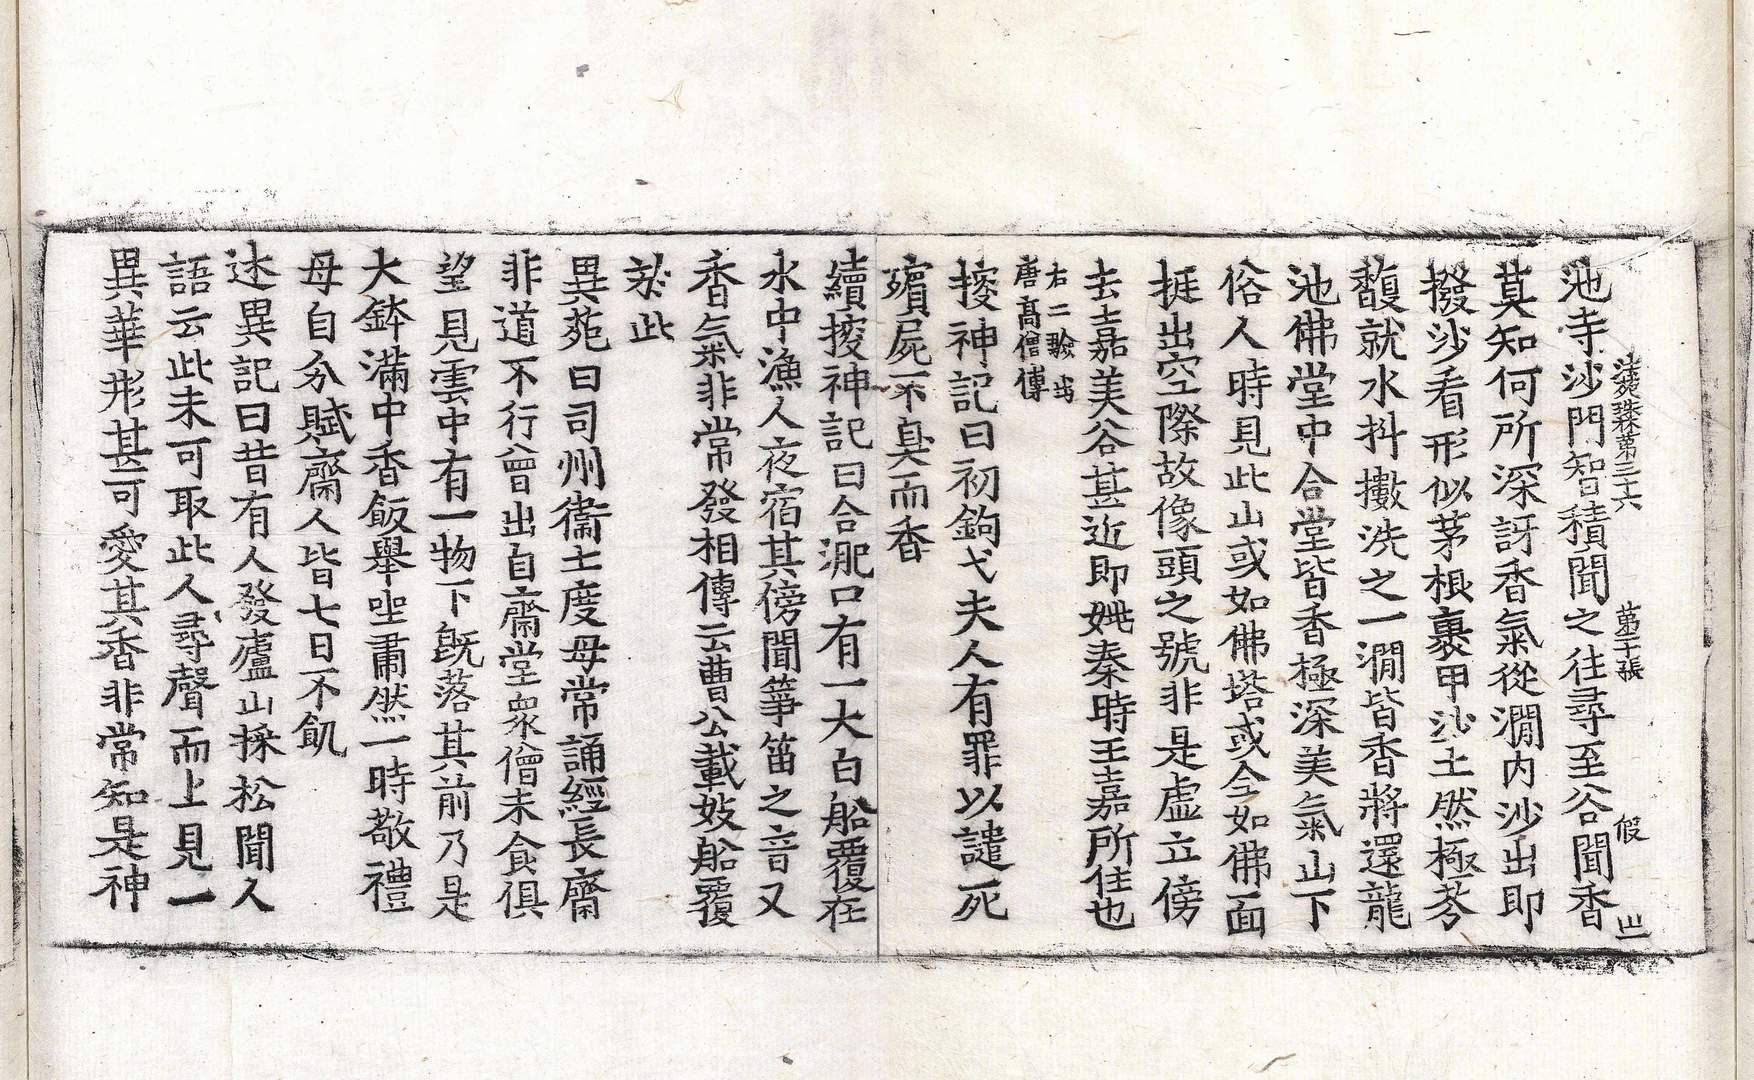 法苑珠林第三十六 第二十張 假
池寺沙門智積聞之往尋至谷聞香
莫知何所深訝香氣從澗內沙出即
撥沙看形似茅根裹甲沙土然極芬
馥就水抖擻洗之一澗皆香將還龍
池佛堂中合堂皆香極深美氣山下
俗人時見此山或如佛塔或全如佛面
挺出空際故像頭之號非是虛立傍
去嘉美谷甚近即姚秦時王嘉所住也
右二驗出
唐高僧傳
搜神記曰初鉤弋夫人有罪以譴死
殯屍不臭而香
續搜神記曰合淝口有一大白船覆在
水中漁人夜宿其傍聞箏笛之音又
香氣非常發相傳云曹公載妓船覆
於此
異苑曰司州衞士度母常誦經長齋
非道不行曾出自齋堂衆僧未食俱
望見雲中有一物下既落其前乃是
大鉢滿中香飯舉坐肅然一時敬禮
母自分賦齋人皆七日不飢
述異記曰昔有人發廬山採松聞人
語云此未可取此人尋聲而上見一
異華形甚可愛其香非常知是神